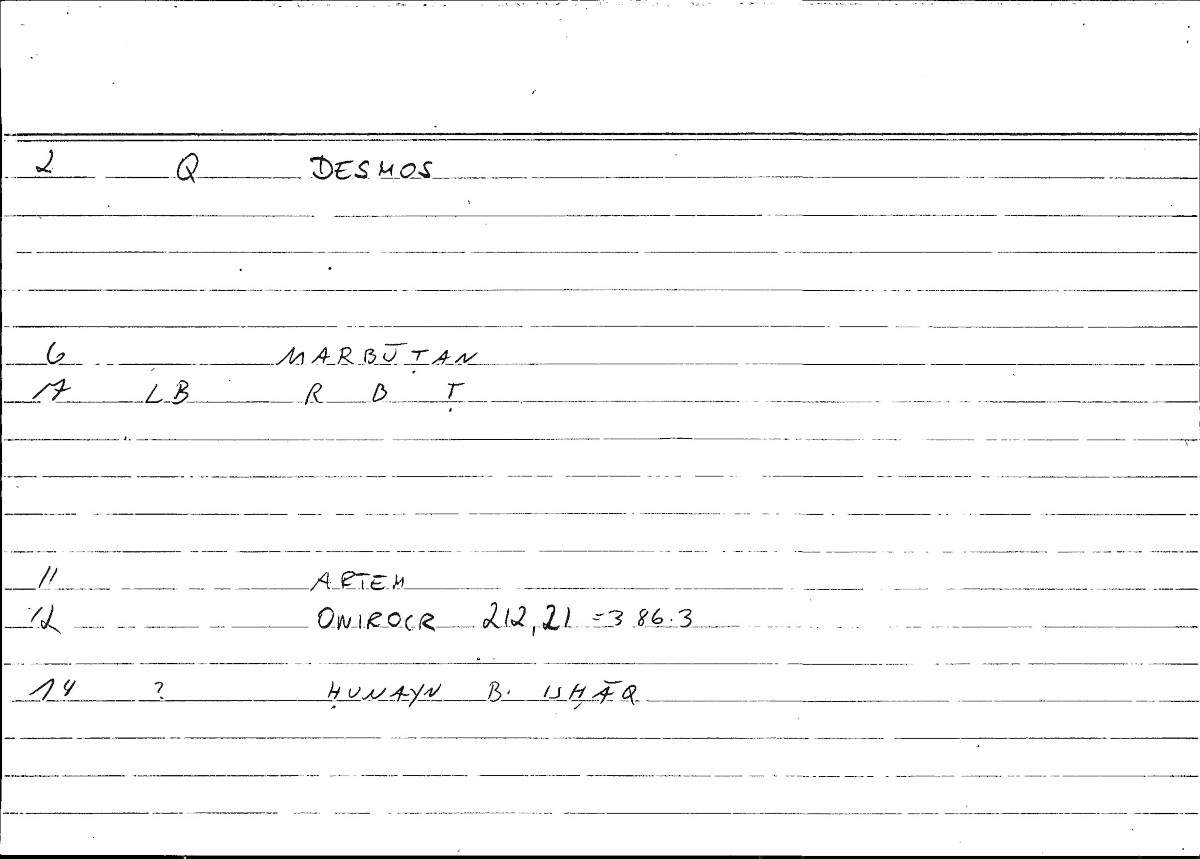 2 Q DESMOS
6 MARBŪṬAN
17 LB R B Ṭ
11 ARTEM
12 ONIROCR 212,21 =386.3
14 ? ḤUNAYN B. ISḤĀQ